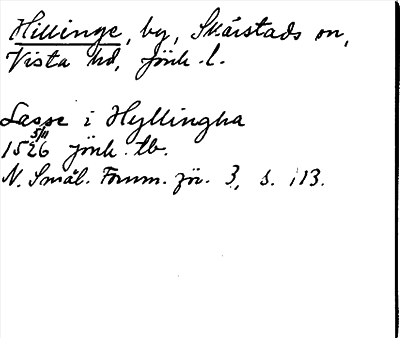 Hillinge, by, Skärstads sn,
Vista hd, Jönk. l.
Lasse i Hyllingha
1526 5/11 Jönk. tb.
N. Smål. Fornm. för. 3, s. 113.